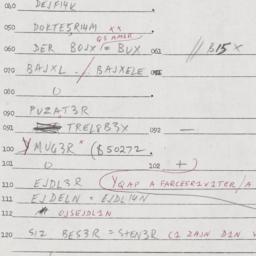 040 DEJFI4K
050 DOKTE5RI4M xx
QS AMER
060 DER BOJX = BUX 061 // B15X
070 BAJXL ./. BAJXELE
080 0
090 PUZAT3R
091 TREL8B3X 092 —
100 YMUG3R * (B50272
101 0 102 +)
110 EJDL3R (YQAP A FARCEER1V1TER/A
111 EJDELN = EJDLI4N
112 * OJSEJDL1N
120 SIZ BES3R = STEN3R (I ZAJN D1N V